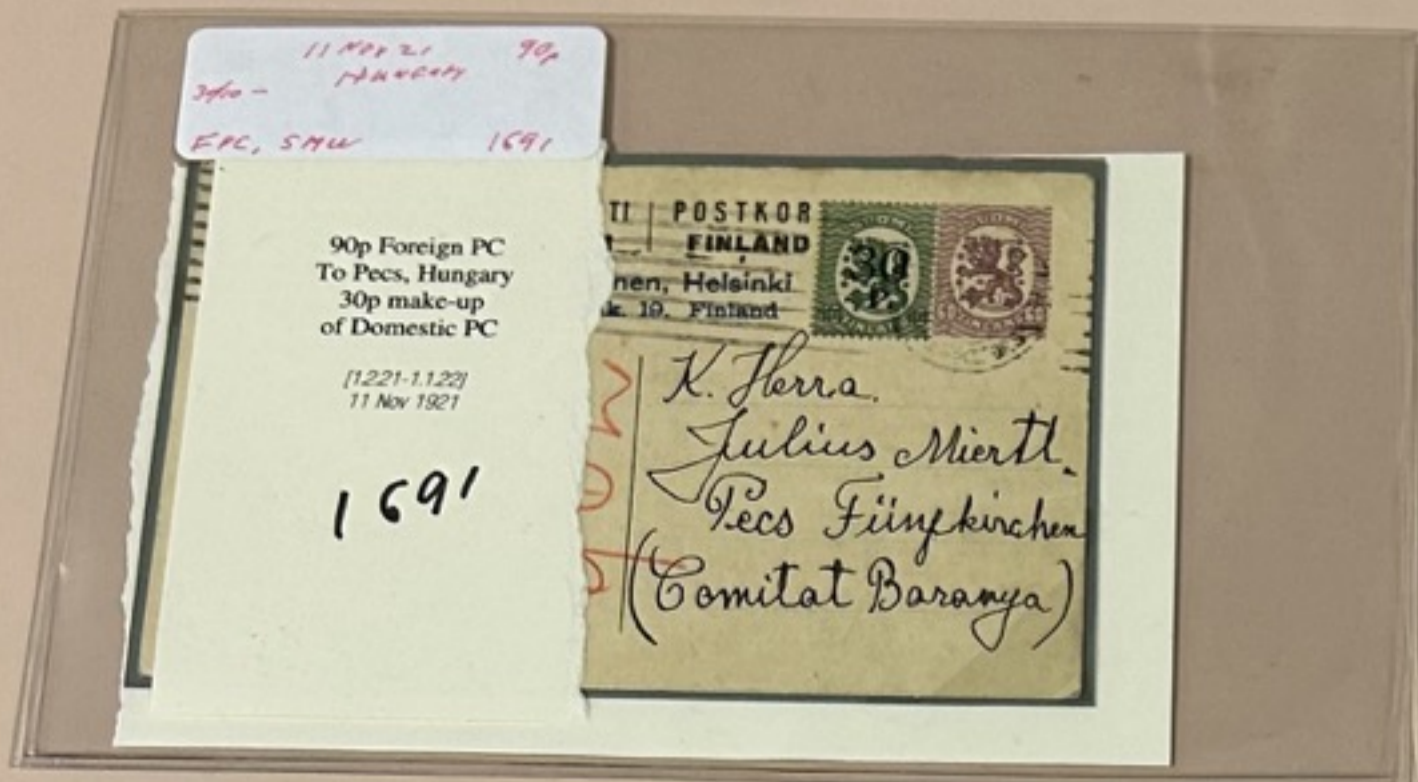 11 Nov 21 90p
HUNGARY
FPC, SMW 1691
90p Foreign PC
To Pecs, Hungary
30p make-up
of Domestic PC
[1.2.21-1.1.22]
11 Nov 1921
1691
TI | POSTKOR
FINLAND
nen, Helsinki
k. 19. Finland
SUOMI SUOMI
30
FINLAND
K. Herra.
Julius Miertl.
Pecs Fünfkirchen
(Comitat Baranya)